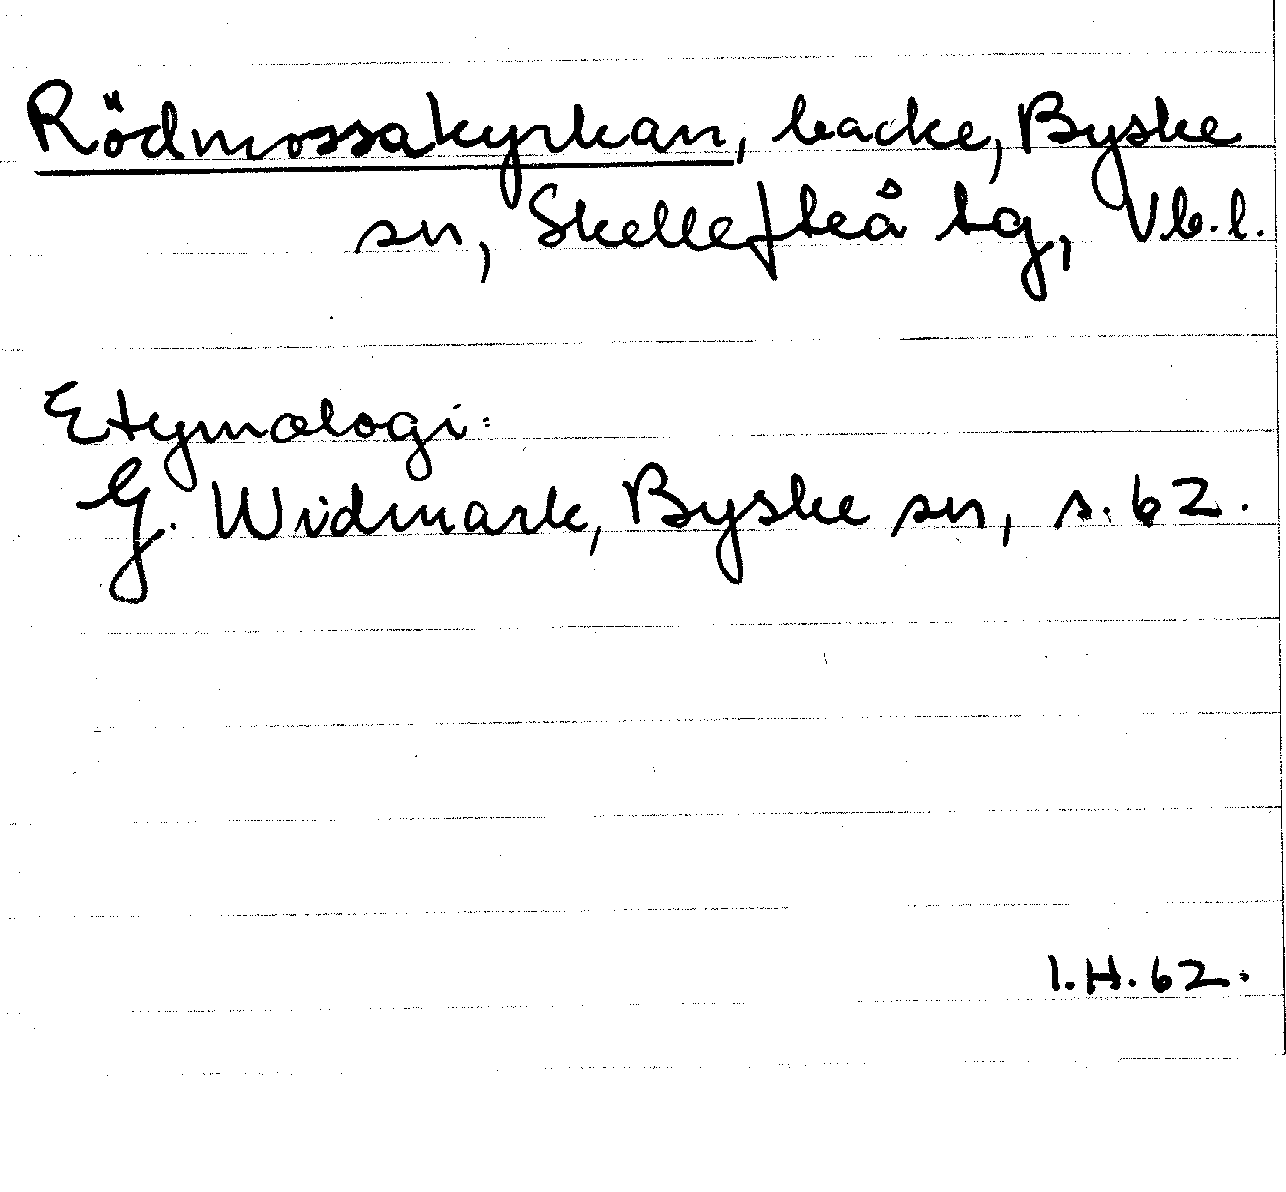 Rödmossakyrkan, backe, Byske
sn, Skellefteå tg, Vb.l.
Etymologi:
G. Widmark, Byske sn, s. 62.
I.H. 62.